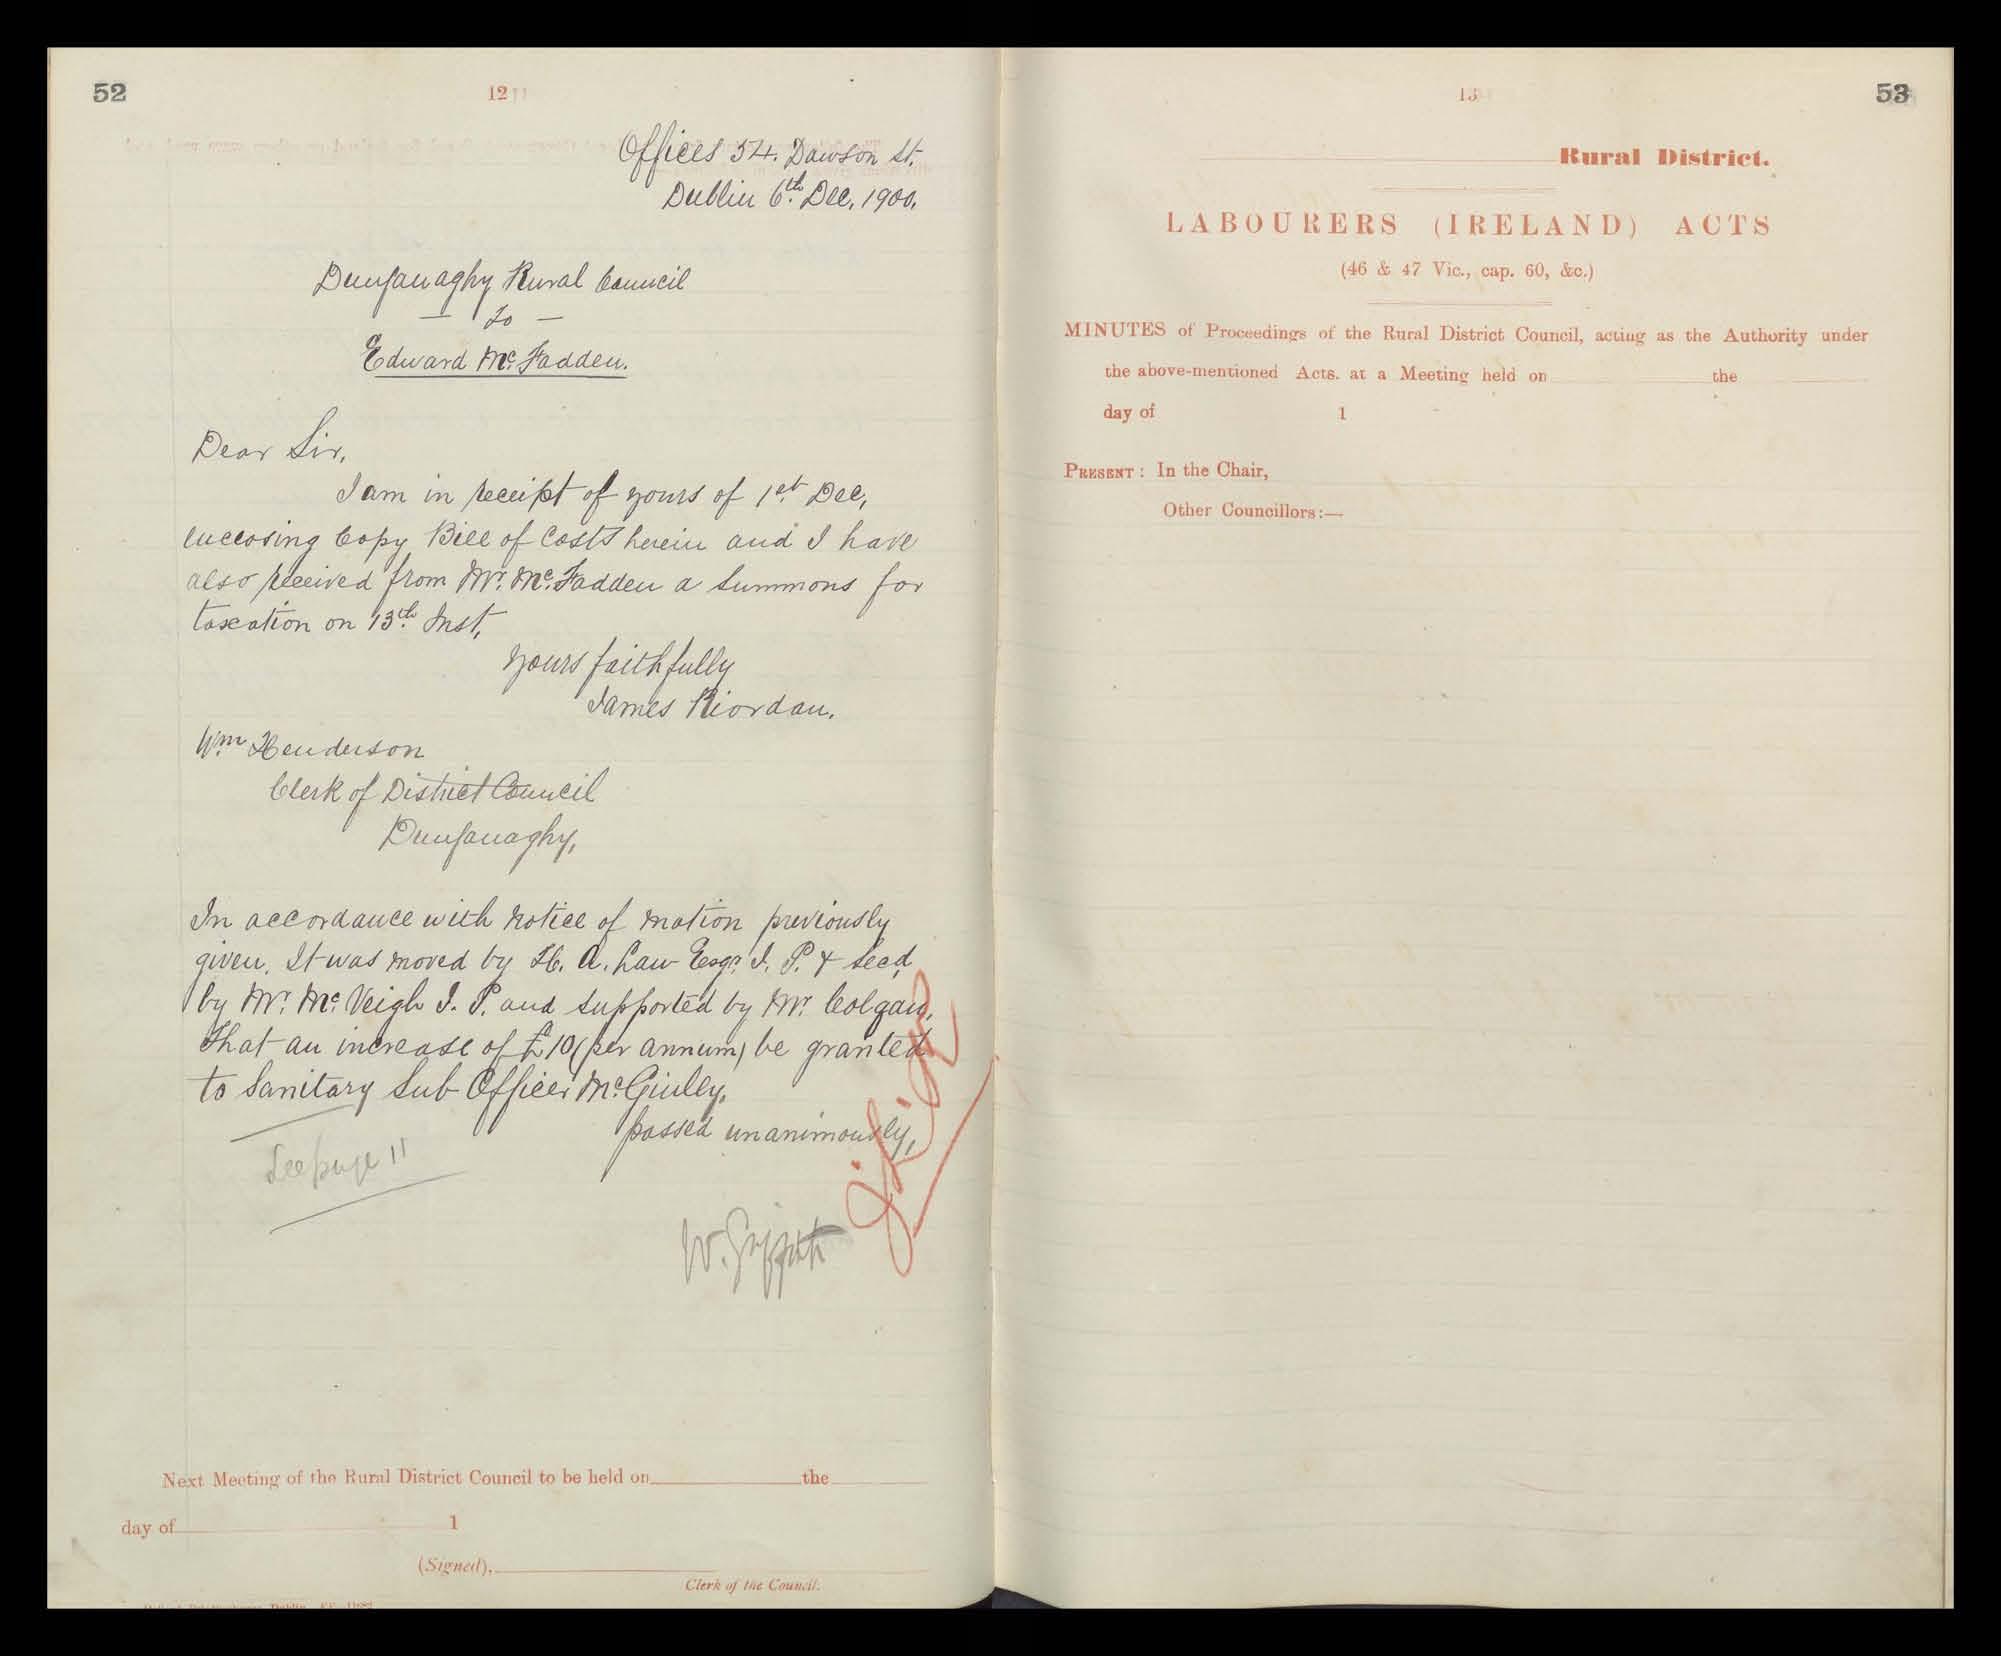 52
12
Offices 54. Dawson St.
Dublin 6th. Dec. 1900.
Dunfanaghy Rural Council
— To —
Edward Mc. Fadden.
Dear Sir,
I am in receipt of yours of 1st. Dec,
enclosing Copy Bill of Costs herein and I have
also received from Mr. Mc. Fadden a Summons for
taxation on 13th. Inst,
Yours faithfully
James Riordan.
Wm. Henderson
Clerk of District Council
Dunfanaghy,
In accordance with notice of motion previously
given. It was moved by H. A. Law Esqr. J. P. & Secd,
by Mr. Mc. Veigh J. P. and supported by Mr. Colgan,
That an increase of £10 (per annum) be granted
to Sanitary Sub Officer Mc. Ginley.
passed unanimously,
See page 11
W. Griffith
Next Meeting of the Rural District Council to be held on the
day of 1
(Signed),
Clerk of the Council.
53
13
Rural District.
LABOURERS (IRELAND) ACTS
(46 & 47 Vic., cap. 60, &c.)
MINUTES of Proceedings of the Rural District Council, acting as the Authority under
the above-mentioned Acts. at a Meeting held on the
day of 1
PRESENT: In the Chair,
Other Councillors:—